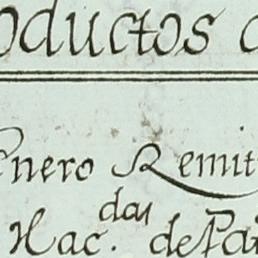 oductos
Enero Remit
das
Hac. de Pai